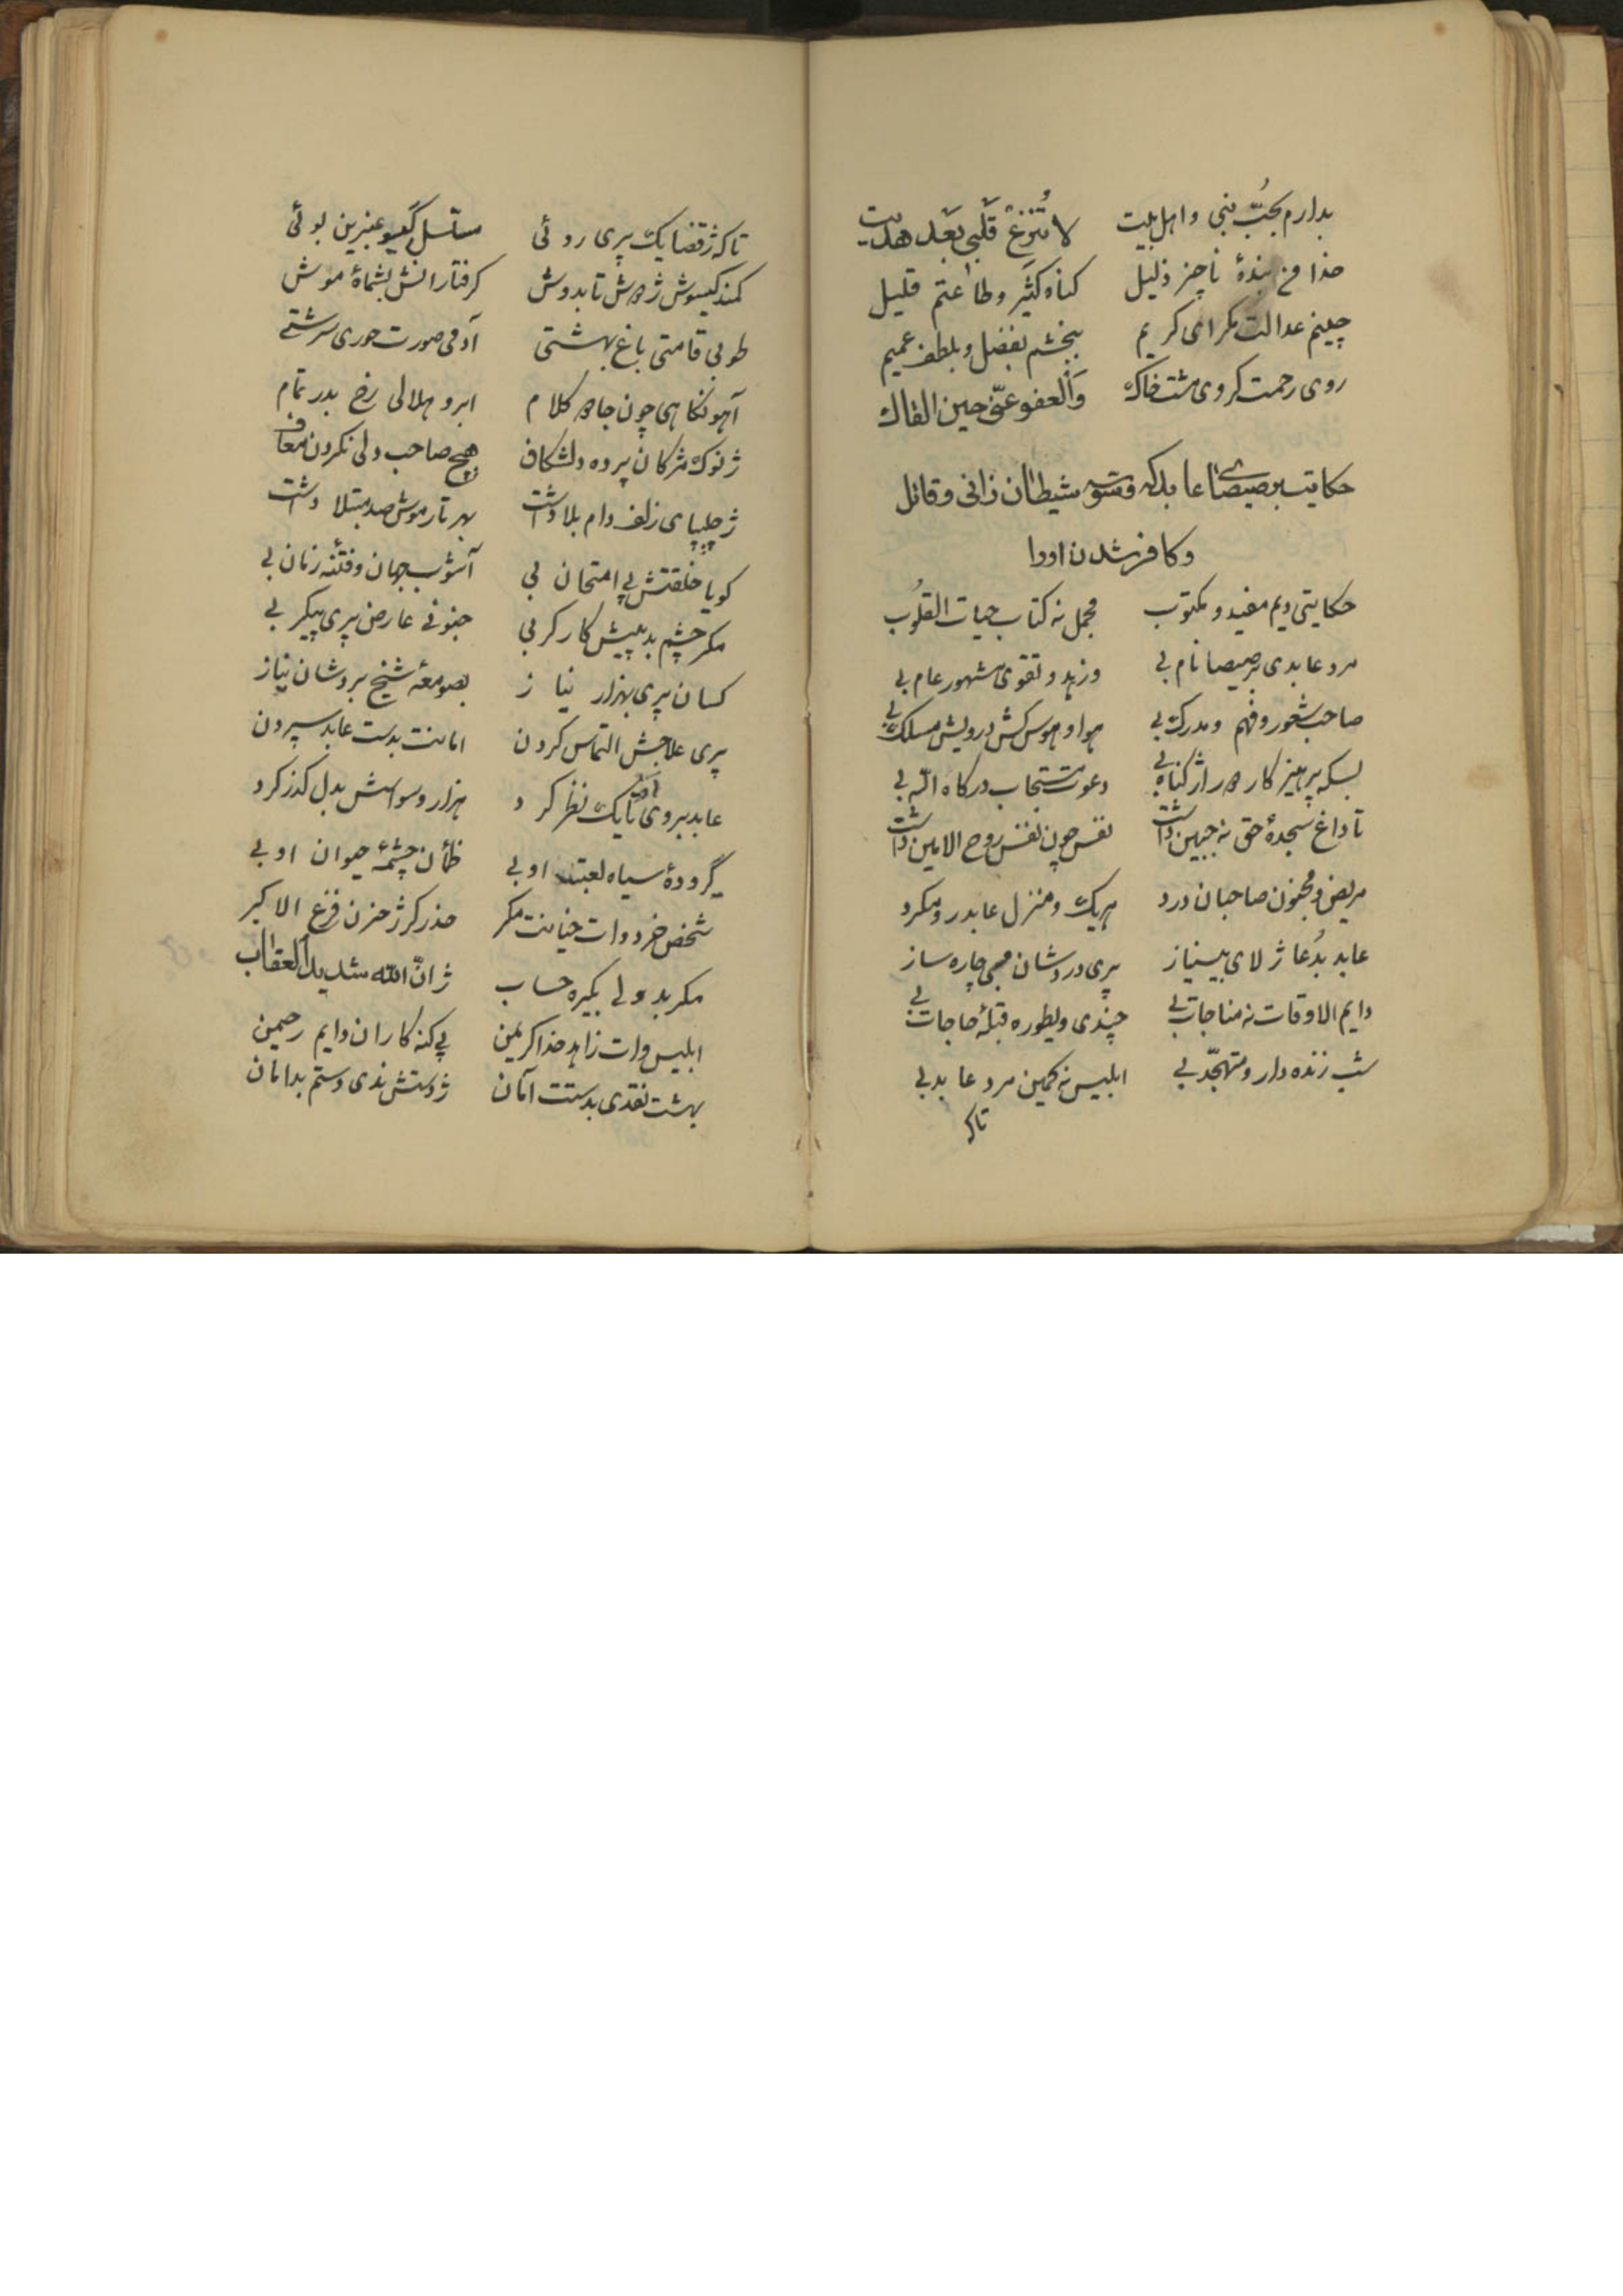 بدارم بحُبّ نبی و اهل بیت لا تُنزغ قَلبی بَعد هدیت
خدا من بندهٔ ناچیز ذلیل کناه کثیر و طاعتم قلیل
چینم عدالت مکر ای کریم ببخشم بفضل و بلطف عمیم
روی رحمت کروی مشت خاک وَالعفو عنّی حین القاك
حکایت برصیصای عابد که وسوسه شیطان زانی و قاتل
و کافر شدن او را
حکایتی دیم مفید و مکتوب مجمل نه کتاب حیات القلُوب
مرد عابدی برصیصا نام بی و زهد و تقوی مشهور عام بی
صاحب شعور و فهم و مدرک بی هوا و هوس کش درویش مسلک بی
بسکه پرهیزکار هر اژ کناه بی دعوت مستجاب درکاه اللّه بی
تا داغ سجدهٔ حق نه جبین داشت نفس چون نفس روح الامین داشت
مریض و مجنون صاحبان درد هریک و منزل عابد رو مکرد
عابد بدُعا ژ لای بینیاز پری دردشان مبی چاره ساز
دایم الاوقات نه مناجات بی چندی و یطوره قبلهٔ حاجات بی
شب زنده دار و متهجّد بی ابلیس نه کمین مرد عابد بی
تا که
تا که ژ قضا یک پری روئی مسلسل کیسو عنبرین بوئی
کمند کیسوش ژ هرش تا بدوش کرفتارانش بشمارهٔ موش
طوبی قامتی باغ بهشتی آدمی صورت حوری سرشتے
آهو نکاهی چون جا هر کلام ابرو هلالی رخ بدر تمام
ژ نوک مژکان پرده دلشکاف هیچ صاحب دلی نکردن معاف
ژ چلیپای زلف دام بلا داشت بهر تار موش صد مبتلا داشت
کویا خلقتش پی امتحان بی آشوب جهان و فتنه زمان بی
مکر چشم بد پیش کارکر بی جنونی عارض پری پیکر بی
کسان پری بهزار نیاز بصومعهٔ شیخ بردشان نیاز
پری علاجش التماس کردن امانت بدست عابد سپردن
عابد بروی آن تا یک نظر کرد هزار وسواسش بدل کذر کرد
گرودهٔ سیاه لعبت او بی ظمأن چشمهٔ حیوان او بی
شخص خرد وات خیانت مکر حذر کر ژ حزن فزع الاکبر
مکر بد ولی بکیره حساب ژ انّ الله شدید العقاب
ابلیس وات زاهد خدا کریمن پی کنه کاران دایم رحیمن
بهشت نقدی بدستت آمان ژ دستش ندی دستم بدامان